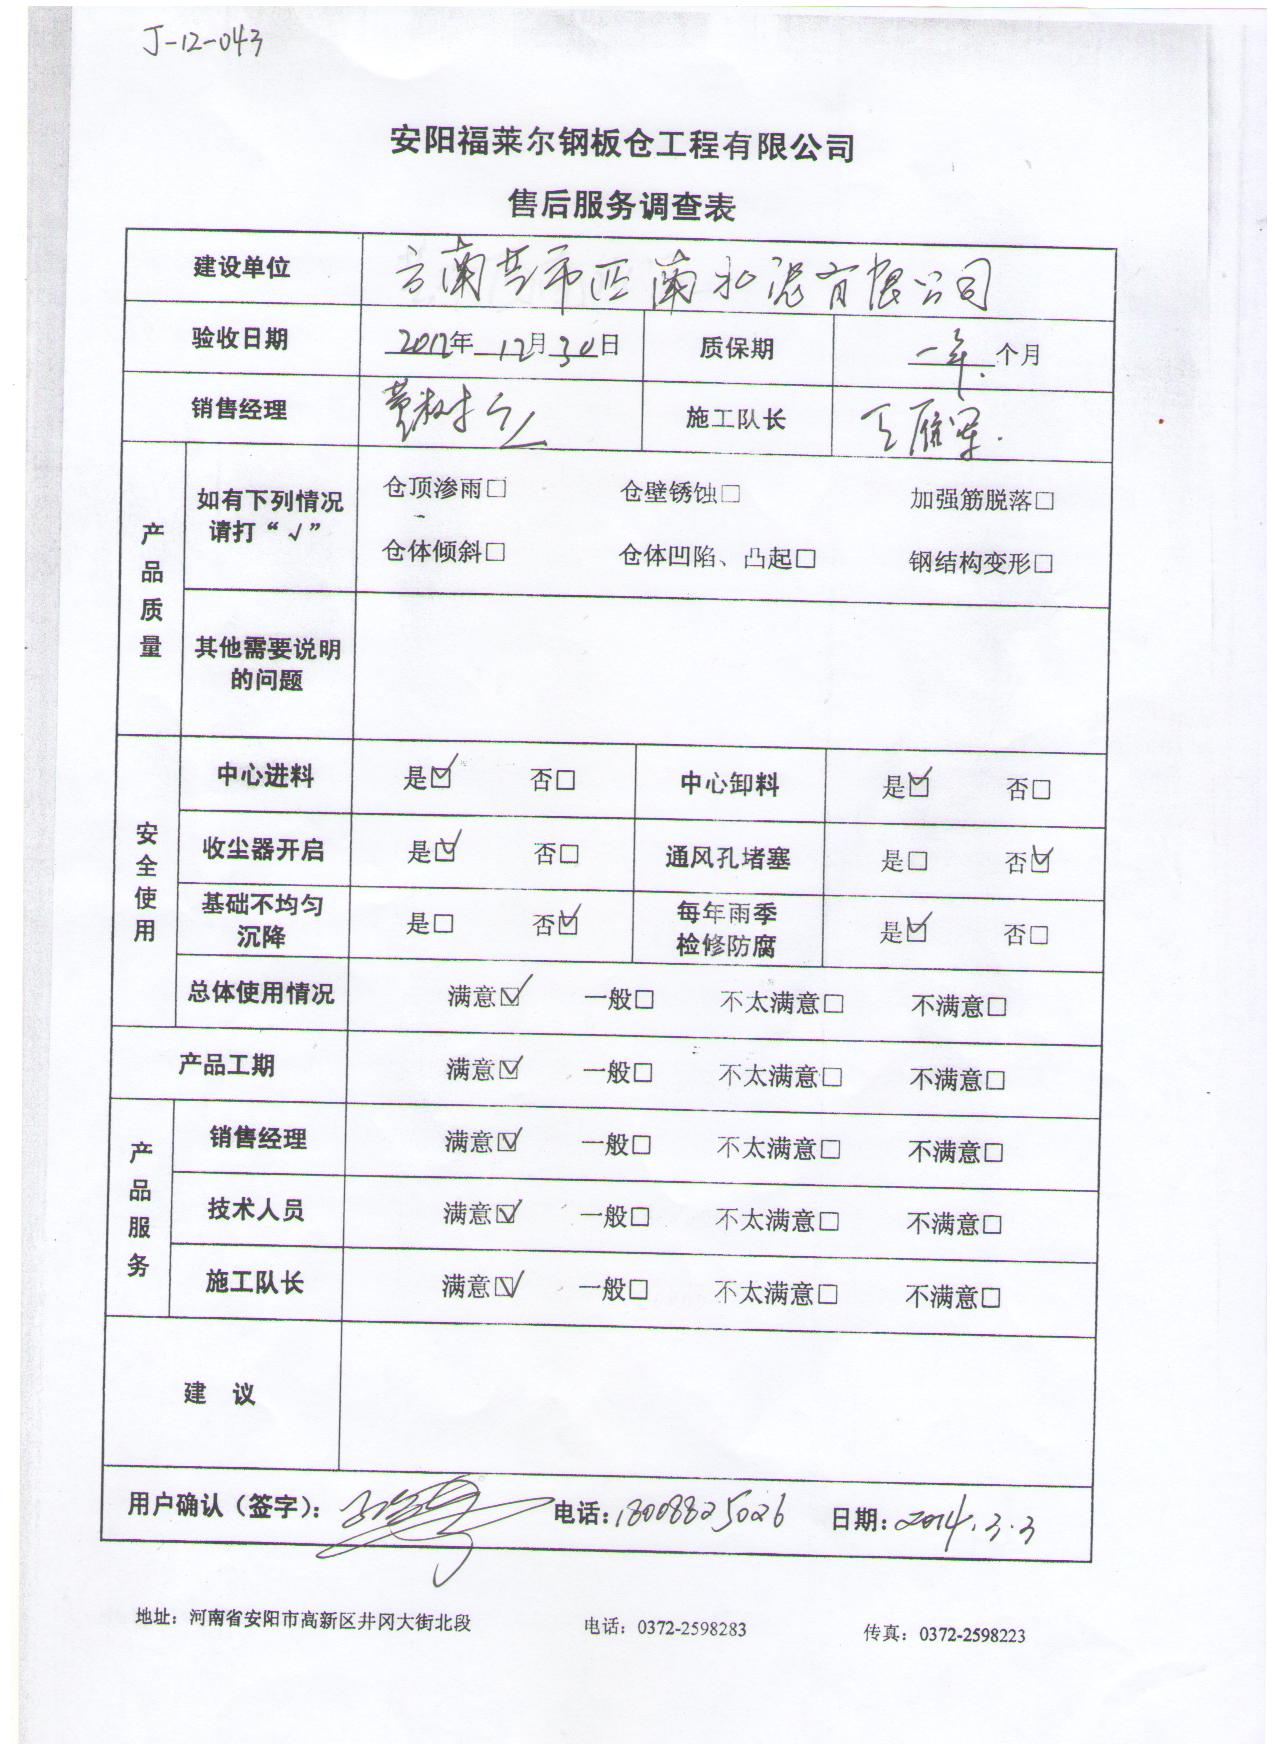 J-12-043
安阳福莱尔钢板仓工程有限公司
售后服务调查表
建设单位 云南芒市西南水泥有限公司
验收日期 2012年 12月30日 质保期 一年 个月
销售经理 施工队长 王雁军
产品质量
如有下列情况请打“√” 仓顶渗雨□ 仓壁锈蚀□ 加强筋脱落□
仓体倾斜□ 仓体凹陷、凸起□ 钢结构变形□
其他需要说明的问题
安全使用
中心进料 是☑ 否□ 中心卸料 是☑ 否□
收尘器开启 是☑ 否□ 通风孔堵塞 是□ 否☑
基础不均匀沉降 是□ 否☑ 每年雨季检修防腐 是☑ 否□
总体使用情况 满意☑ 一般□ 不太满意□ 不满意□
产品工期 满意☑ 一般□ 不太满意□ 不满意□
产品服务
销售经理 满意☑ 一般□ 不太满意□ 不满意□
技术人员 满意☑ 一般□ 不太满意□ 不满意□
施工队长 满意☑ 一般□ 不太满意□ 不满意□
建 议
用户确认（签字）： 电话：18008825026 日期：2014.3.3
地址：河南省安阳市高新区井冈大街北段 电话：0372-2598283 传真：0372-2598223